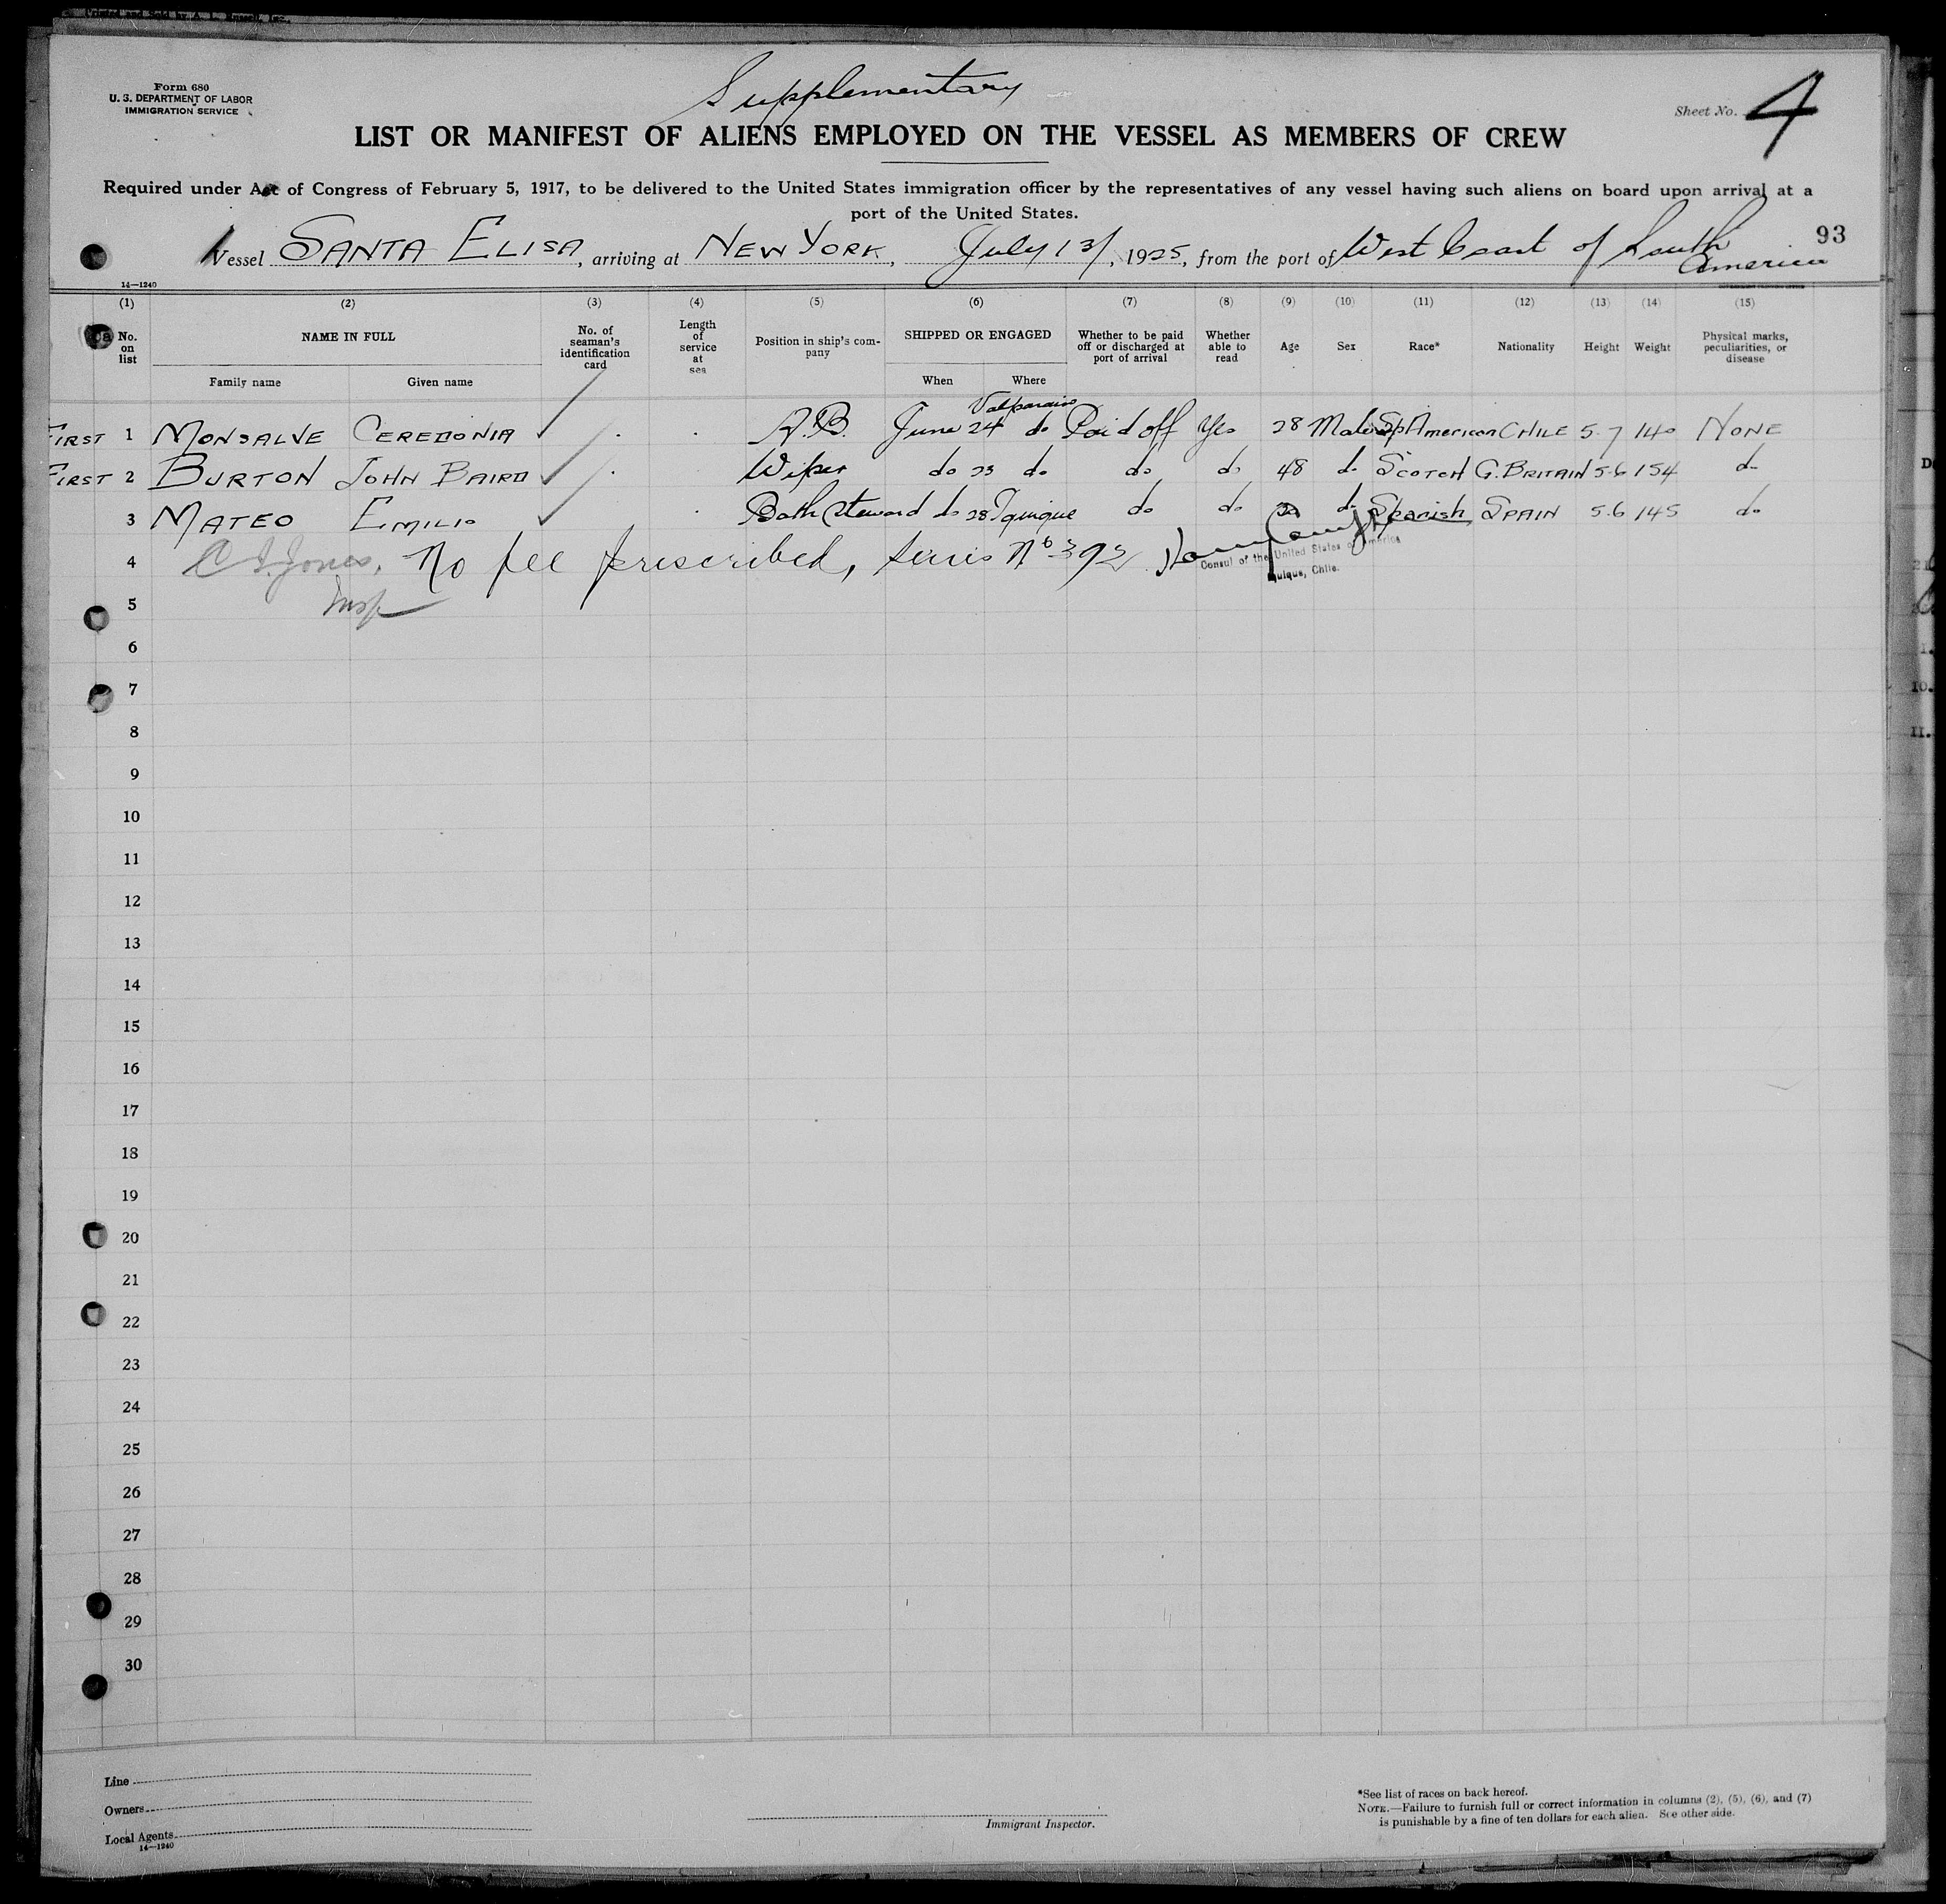 Form 680
U. S. DEPARTMENT OF LABOR
IMMIGRATION SERVICE
Supplementary
Sheet No. 4
LIST OR MANIFEST OF ALIENS EMPLOYED ON THE VESSEL AS MEMBERS OF CREW
Required under Act of Congress of February 5, 1917, to be delivered to the United States immigration officer by the representatives of any vessel having such aliens on board upon arrival at a
port of the United States.
93
Vessel SANTA ELISA, arriving at NEW YORK, July 13, 1925, from the port of West Coast of South America
14—1240
(1) (2) (3) (4) (5) (6) (7) (8) (9) (10) (11) (12) (13) (14) (15)
No. on list NAME IN FULL No. of seaman's identification card Length of service at sea Position in ship's company SHIPPED OR ENGAGED Whether to be paid off or discharged at port of arrival Whether able to read Age Sex Race* Nationality Height Weight Physical marks, peculiarities, or disease
Family name Given name When Where
Valparaiso
FIRST 1 MONSALVE CEREDONIA A.B. June 24 do Paid off Yes 28 Male Sp American CHILE 5.7 140 NONE
FIRST 2 BURTON JOHN BAIRD Wiper do 23 do do do 48 do SCOTCH G. BRITAIN 5.6 154 do
3 MATEO EMILIO Bath Steward do 28 Iquique do do do Spanish SPAIN 5.6 145 do
4 Jones, No fee prescribed,
Consul of the United States of America
Iquique, Chile.
5 Insp
6
7
8
9
10
11
12
13
14
15
16
17
18
19
20
21
22
23
24
25
26
27
28
29
30
Line
Owners
Local Agents
14—1240
Immigrant Inspector.
*See list of races on back hereof.
NOTE.—Failure to furnish full or correct information in columns (2), (5), (6), and (7)
is punishable by a fine of ten dollars for each alien. See other side.